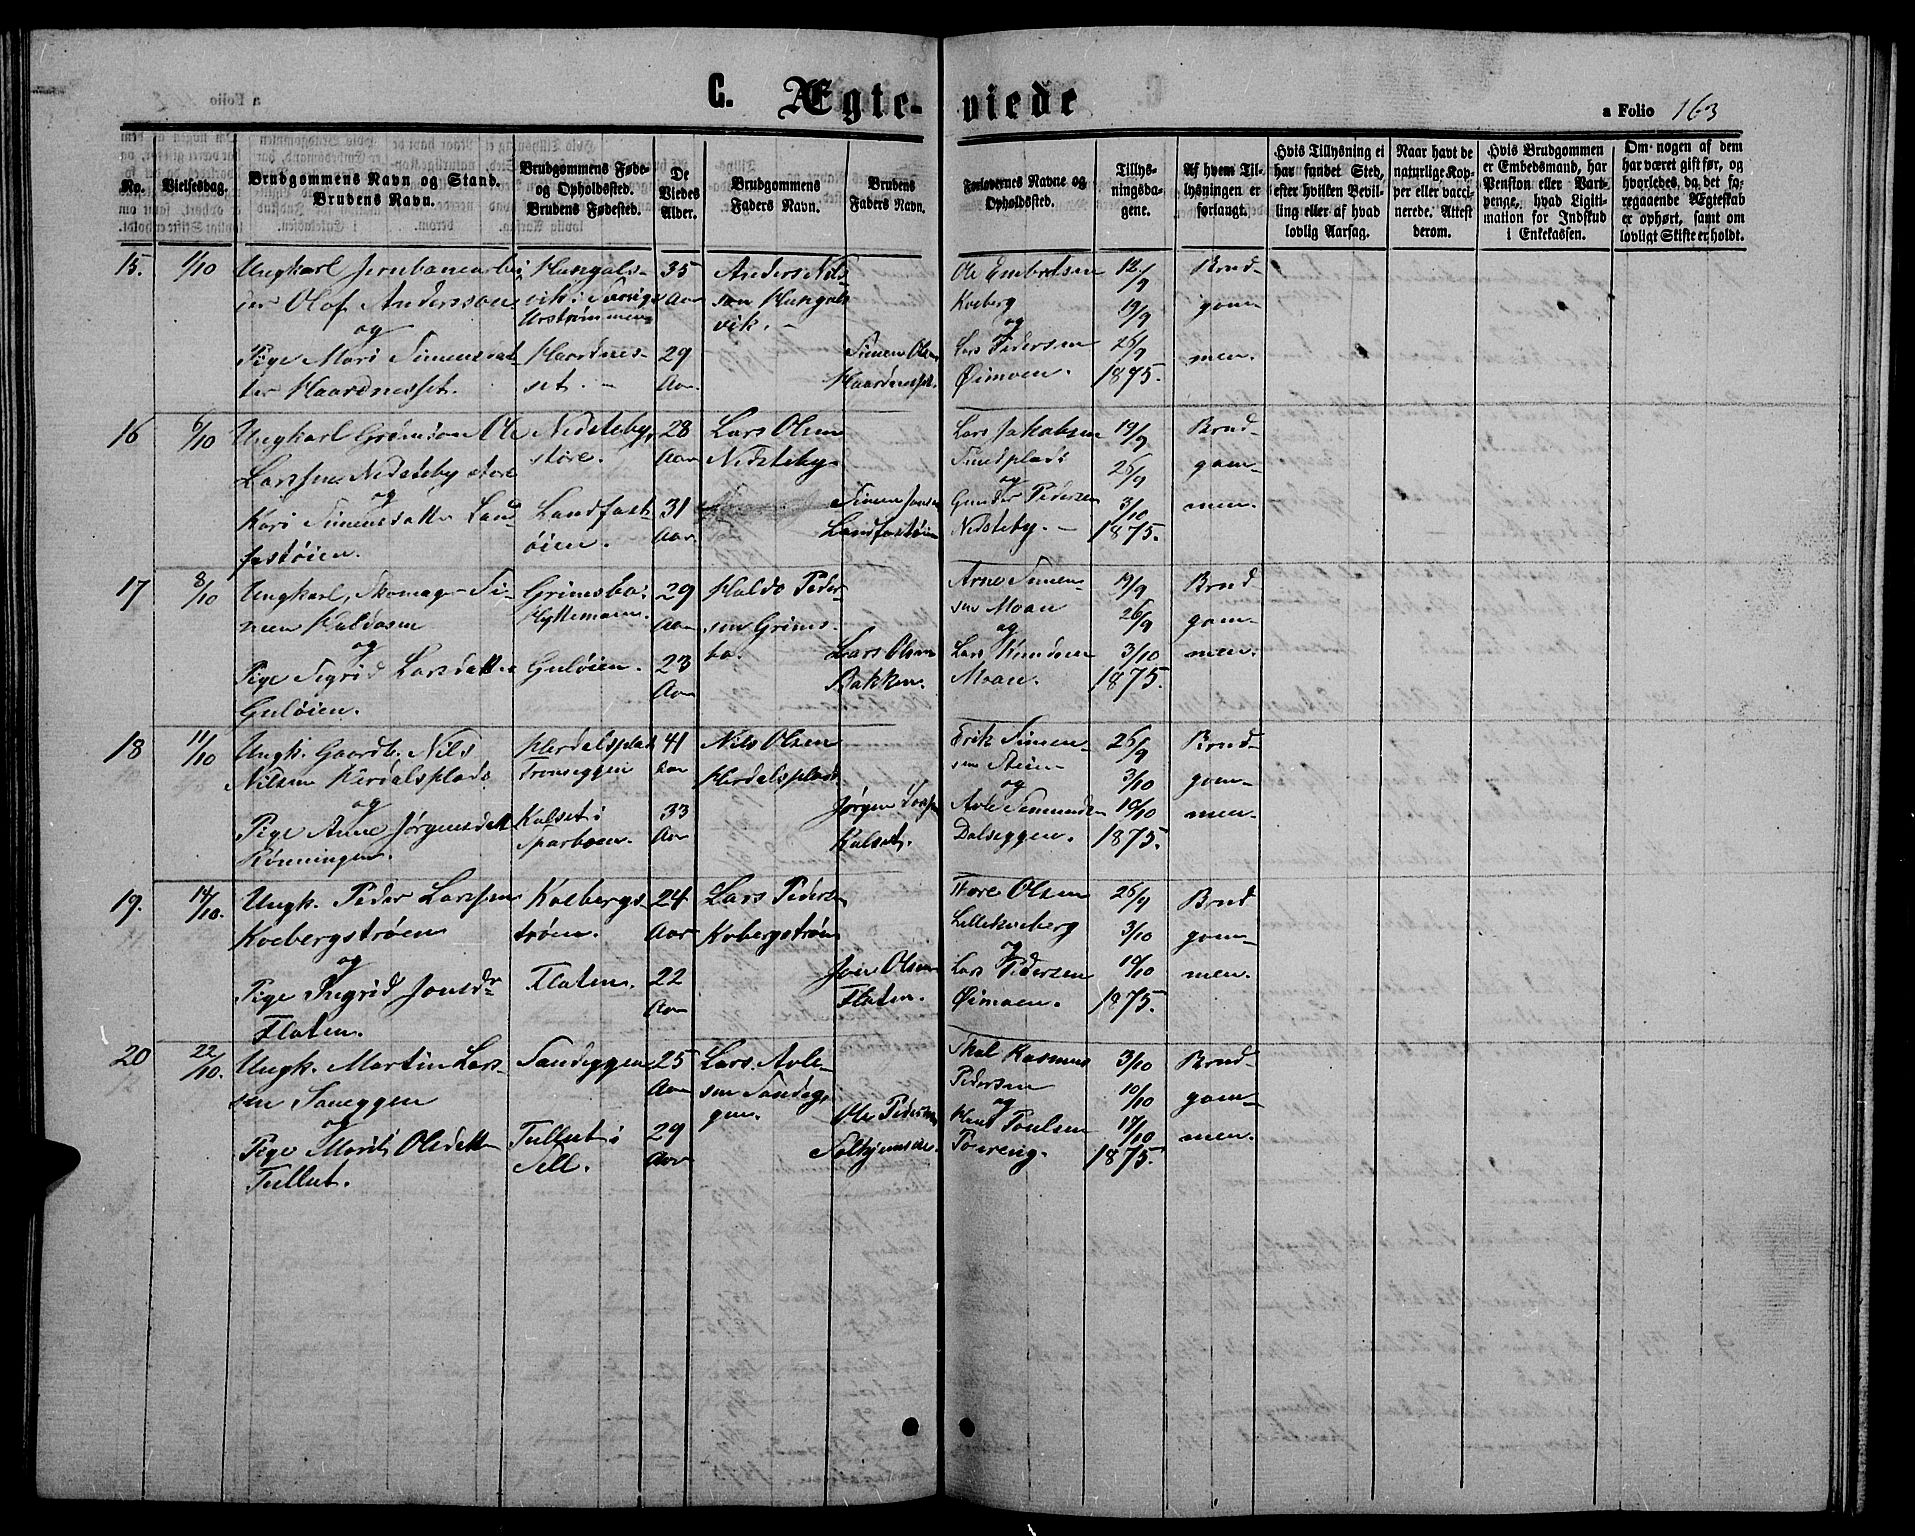 C. Ægte-viede
a Folio 163
No.
Vielsesdag.
Brudgommens Navn og Stand.
Brudens Navn.
Brudgommens Føde-
og Opholdssted.
Brudens Fødested.
De
Viedes
Alder.
Brudgommens
Faders Navn.
Brudens
Faders Navn.
Forlovernes Navne og
Opholdssted.
Tillys-
ningsda-
gene.
Af hvem Til-
lysningen er
forlangt.
Hvis Tillysning ei
har fundet Sted,
efter hvilken Bevil-
ling eller af hvad
lovlig Aarsag.
Naar havt de
naturlige Kop-
per eller vacci-
nerede. Attest
derom.
Hvis Brudgommen
er Embedsmand, har
Pension eller Vart-
penge, hvad Ligiti-
mation for Indskud
i Enkekassen.
Om nogen af dem
har været gift før, og
hvorledes da det fo-
regaaende Ægteskab
er ophørt, samt om
lovligt Skifte er holdt.
15. 1/10 Ungkarl Jernbanearbei-
der Olof Andersson
og
Pige Mari Simensdat-
ter Haardnesset.
i Sverige
Haardnes-
set. -
35
Aar
29
Aar.
Anders Nils-
sen
vik. -
Simen Olsen
Haardnesset.
Ole Embretsen
Kveberg
og
Lars Pedersen
Øimoen.
12/9
19/9
26/9
1875.
Brud-
gom-
men.
16 6/10 Ungkarl Ole
Larssen Nedsteby store
og
Kari Simensdatter Land-
fastøien.
Nedsteby
store.
Landfast-
øien.
28
Aar
31
Aar.
Lars Olsen
Nedsteby
Simen Jonsen
Landfastøien
Lars Jakobsen
og
Gunder Pedersen
Nedsteby. -
19/9
26/9
3/10
1875.
Brud-
gom-
men.
17 8/10 Ungkarl, Skomag. Si-
men Haldosen
og
Pige Sigrid Larsdatter
Guløien.
Grimsbo.
Hyttemoen.
Guløien.
29
Aar
23
Aar
Haldo Peder-
sen Grims-
bo.
Lars Olsen
Bakken.
Arne Simen-
sen Moan
og
Lars Knudsen
Moan.
19/9
26/9
3/10
1875.
Brud-
gom-
men.
18 11/10 Ungk. Gaardb. Nils
Nilsen
og
Pige Anne Jørgensdatt
Rønningen.
Tronseggen
Kalset i
Sparboen.
41
Aar
33
Aar
Nils Olsen
Jørgen
Kalset.
Erik Simen-
sen Steien
og
Avle Simundsen
Dalseggen.
26/9
3/10
10/10
1875.
Brud-
gom-
men.
19. 14/10. Ungk. Peder Larssen
Kvebergstrøen
og
Pige Ingrid Jonsdr
Flaten.
Kvebergs-
trøen.
Flaten.
24
Aar
22
Aar
Lars Peders.
Kvebergstrøen
Jon Olsen
Flaten.
Tore Olsen
Lillekveberg
og
Lars Pedersen
Øimoen.
26/9
3/10
10/10
1875.
Brud
gom-
men.
20 22/10. Ungk. Martin Lars-
sen Saneggen
og
Pige Marit Olsdatt
Tullut.
Sandeggen
Tullut i
Sell.
25
Aar
29
Aar
Lars Avle-
sen Sandeg-
gen.
Ole Pedersen
Solhjemslien.
Skol. Rasmus
Pedersen
og
Knut Poulsen
Poereng.
3/10
10/10
17/10
1875.
Brud-
gom-
men.